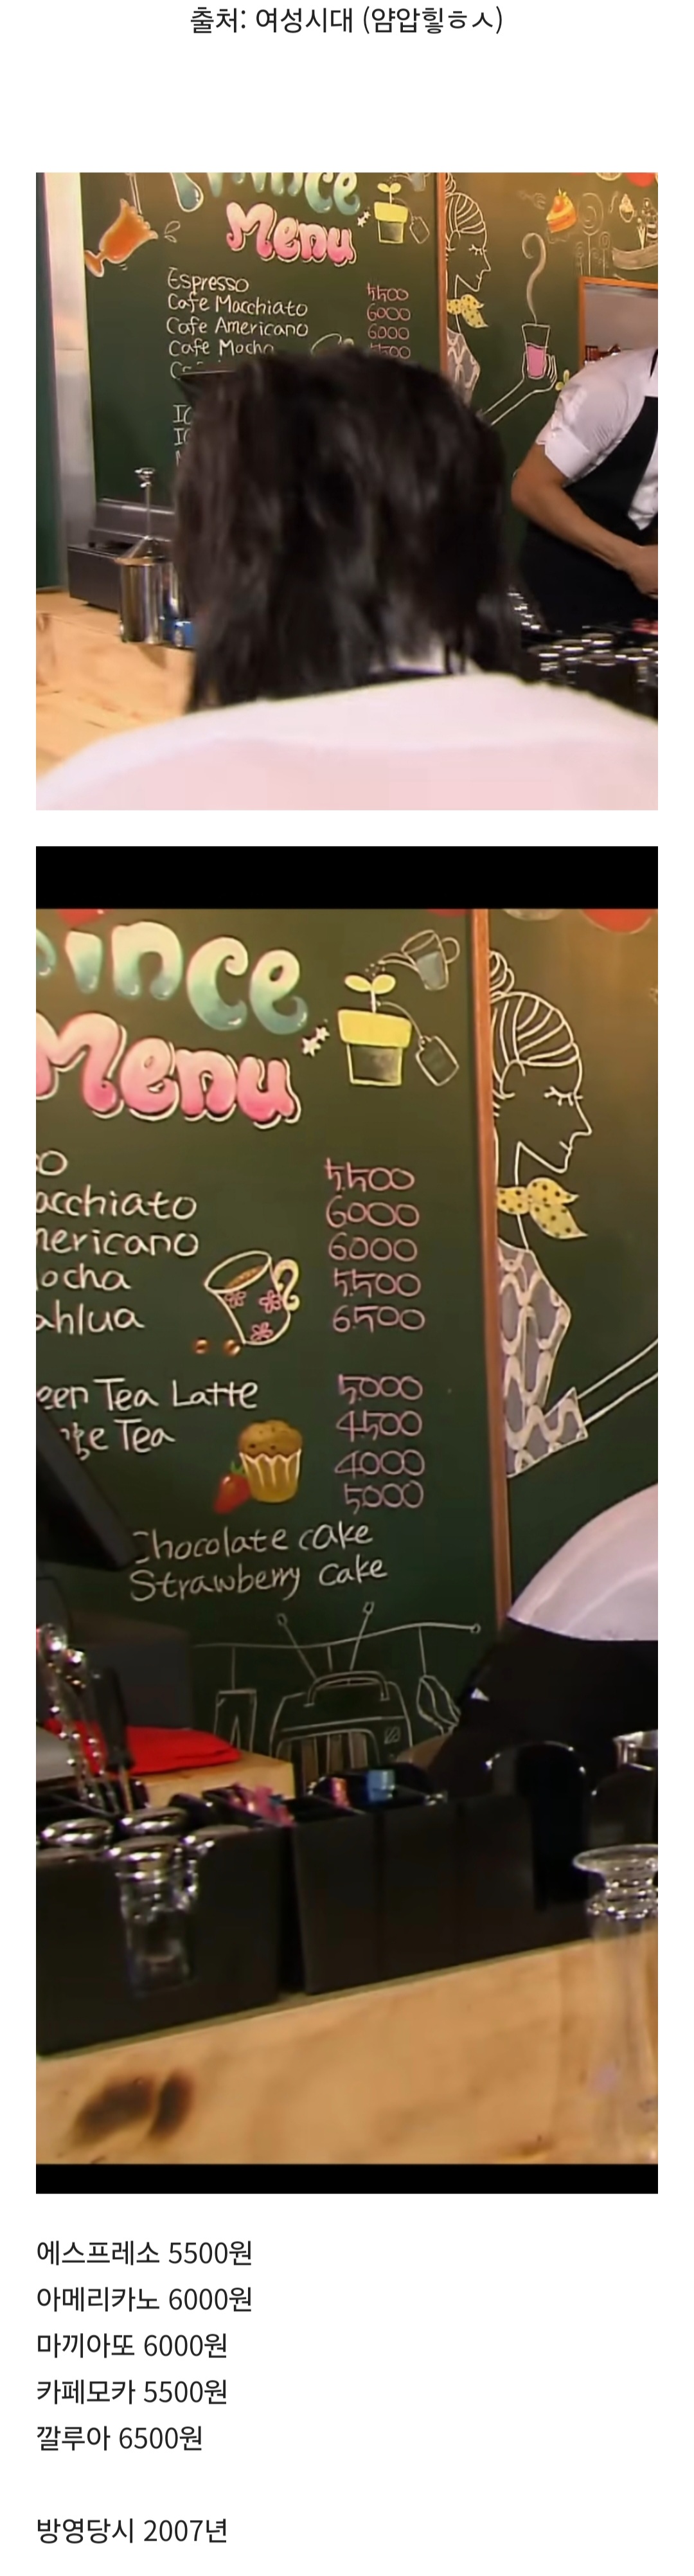 출처: 여성시대 (얌압힣ㅎㅅ)
Menu
Espresso 5500
Cafe Macchiato 6000
Cafe Americano 6000
Cafe Mocha
ince
Menu
o 5500
acchiato 6000
mericano 6000
ocha 5500
ahlua 6500
een Tea Latte 5000
Tea 4500
4000
5000
Chocolate cake
Strawberry cake
에스프레소 5500원
아메리카노 6000원
마끼아또 6000원
카페모카 5500원
깔루아 6500원
방영당시 2007년